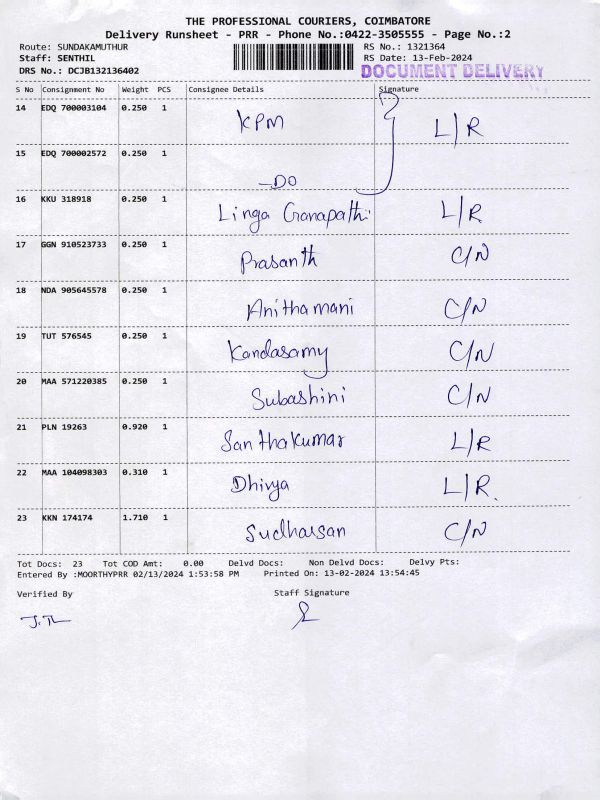 THE PROFESSIONAL COURIERS, COIMBATORE
Delivery Runsheet - PRR - Phone No.:0422-3505555 - Page No.:2
Route: SUNDAKAMUTHUR RS No.: 1321364
Staff: SENTHIL RS Date: 13-Feb-2024
DRS No.: DCJB132136402 DOCUMENT DELIVERY
S No Consignment No Weight PCS Consignee Details Signature
14 EDQ 700003104 0.250 1 KPM L/R
15 EDQ 700002572 0.250 1 -DO
16 KKU 318918 0.250 1 Linga Ganapathi L/R
17 GGN 910523733 0.250 1 Prasanth C/N
18 NDA 905645578 0.250 1 Anithamani C/N
19 TUT 576545 0.250 1 Kandasamy C/N
20 MAA 571220385 0.250 1 Subashini C/N
21 PLN 19263 0.920 1 Santhakumar L/R
22 MAA 104098303 0.310 1 Dhivya L/R.
23 KKN 174174 1.710 1 Sudharsan C/N
Tot Docs: 23 Tot COD Amt: 0.00 Delvd Docs: Non Delvd Docs: Delvy Pts:
Entered By :MOORTHYPRR 02/13/2024 1:53:58 PM Printed On: 13-02-2024 13:54:45
Verified By Staff Signature